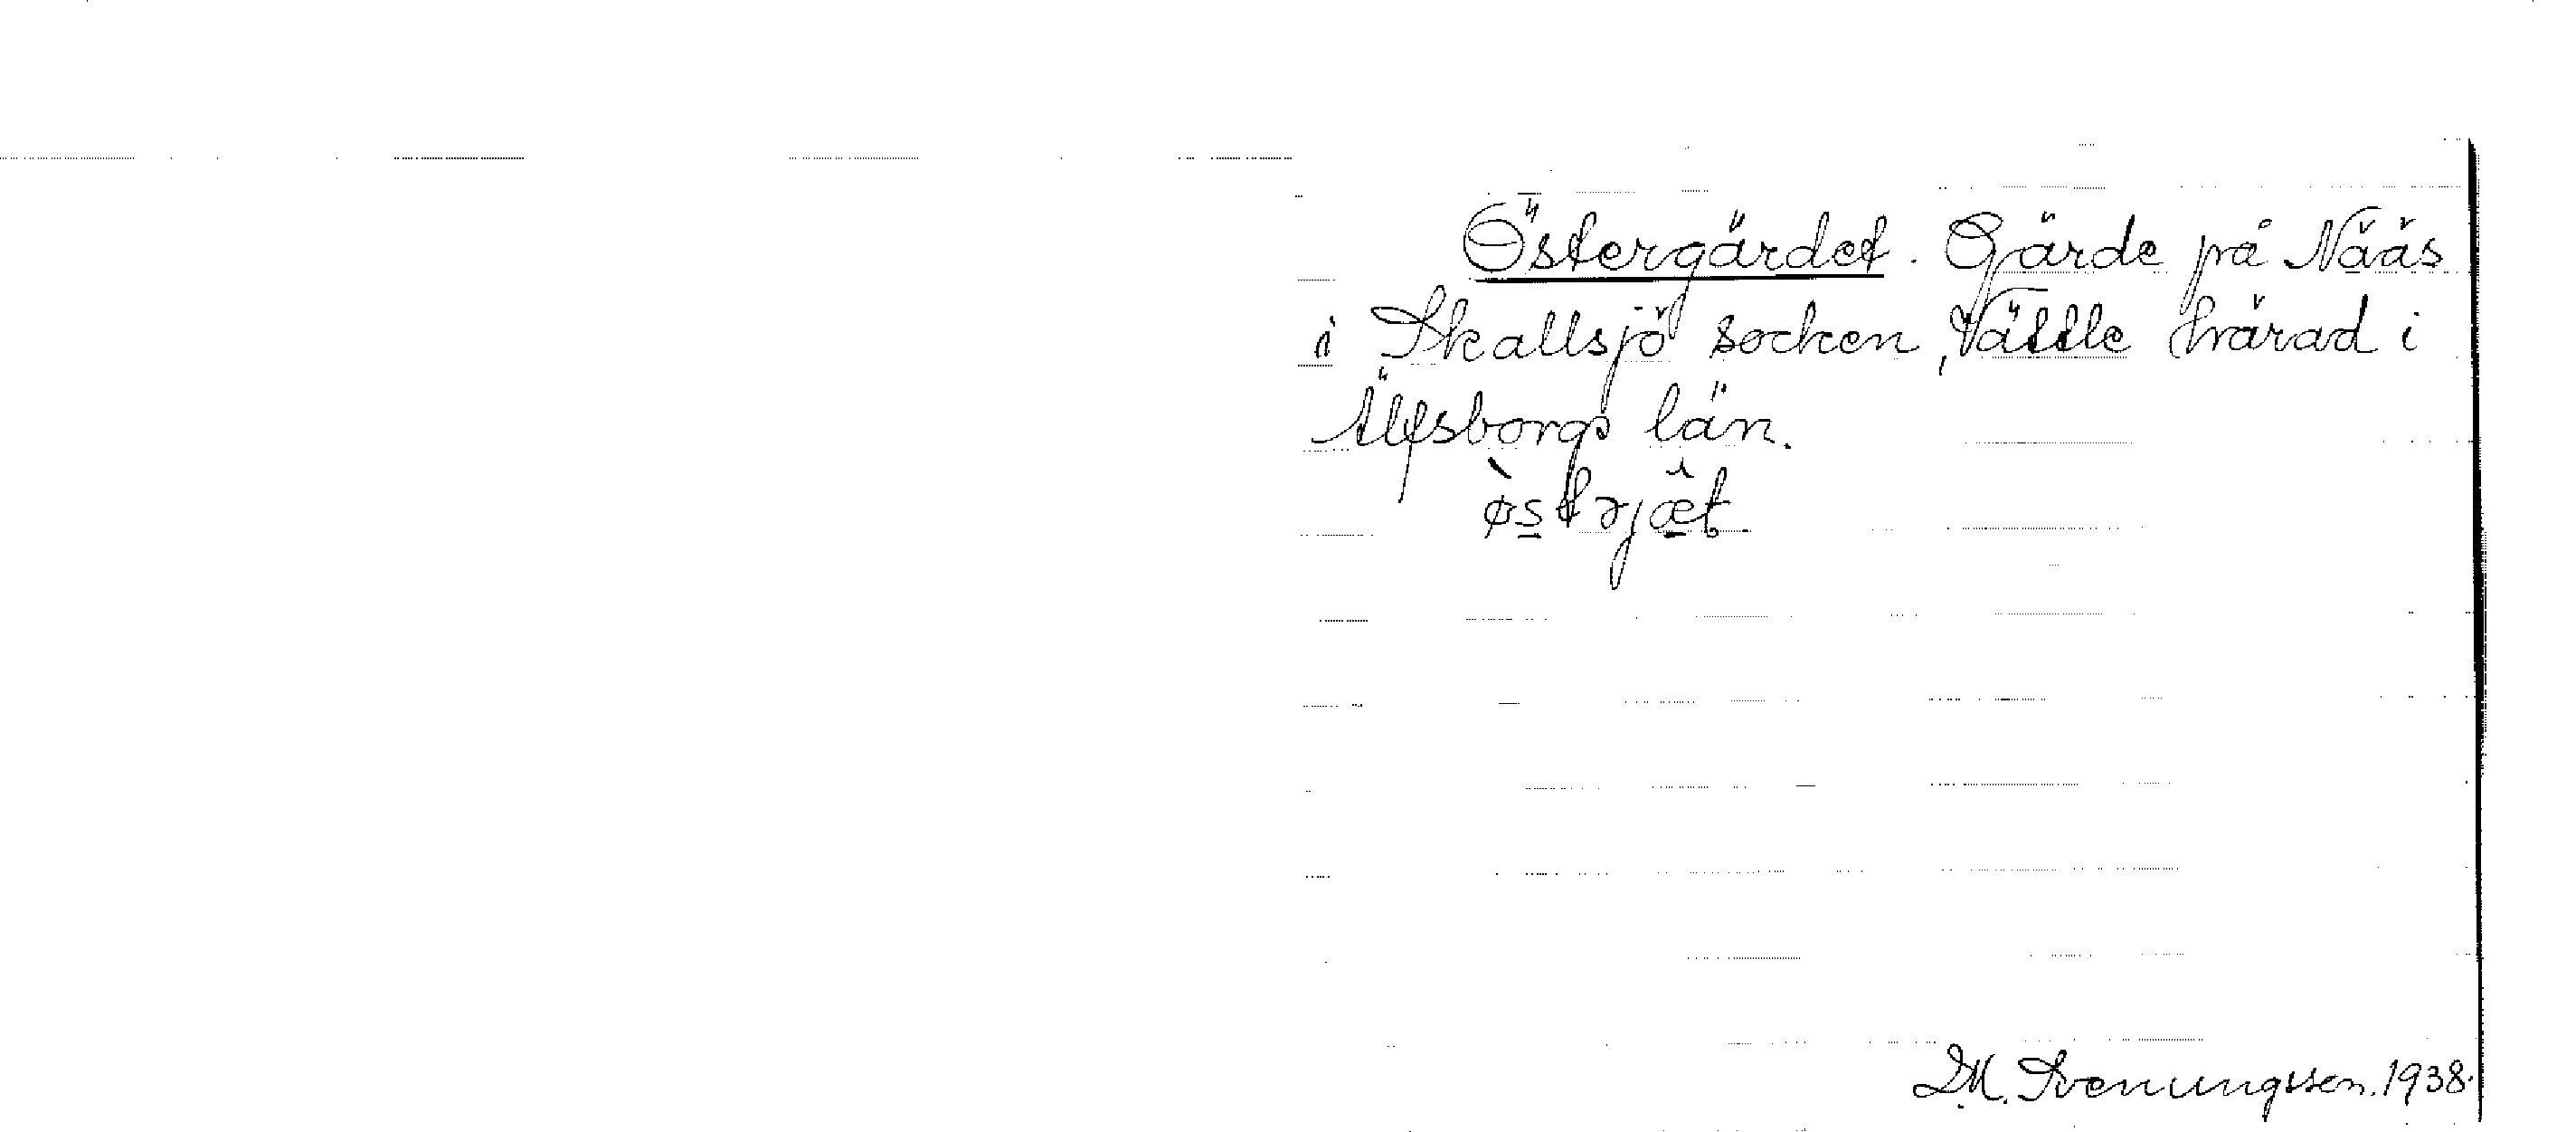 Östergärdet. Gärde på Nääs
i Skallsjö socken, Vättle härad i
Älfsborgs län.
D.M. Svenungsson. 1938.